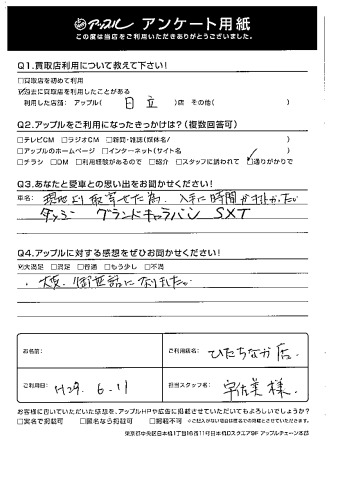 アップル アンケート用紙
この度は当店をご利用いただきありがとうございました。
Q1.買取店利用について教えて下さい!
□買取店を初めて利用
☑過去に買取店を利用したことがある
利用した店舗: アップル( 日立 )店 その他( )
Q2.アップルをご利用になったきっかけは?(複数回答可)
□テレビCM □ラジオCM □新聞・雑誌(媒体名/ )
□アップルのホームページ □インターネット(サイト名 )
□チラシ □DM □利用経験があるので □紹介 □スタッフに誘われて ☑通りがかりで
Q3.あなたと愛車との思い出をお聞かせください!
車名: 現地より取寄せた為、入手に時間が掛かった
ダッジ グランドキャラバン SXT
Q4.アップルに対する感想をぜひお聞かせください!
☑大満足 □満足 □普通 □もう少し □不満
大変、お世話になりました。
お名前:
ご利用店名: ひたちなか店
ご利用日: H29. 6.11
担当スタッフ名: 宇佐美様
お客様に書いていただいた感想を、アップルHPや広告に掲載させていただいてもよろしいでしょうか?
□実名で掲載可 □匿名なら掲載可 □掲載不可
東京都中央区日本橋1丁目16番11号日本橋Dスクエア9F アップルチェーン本部